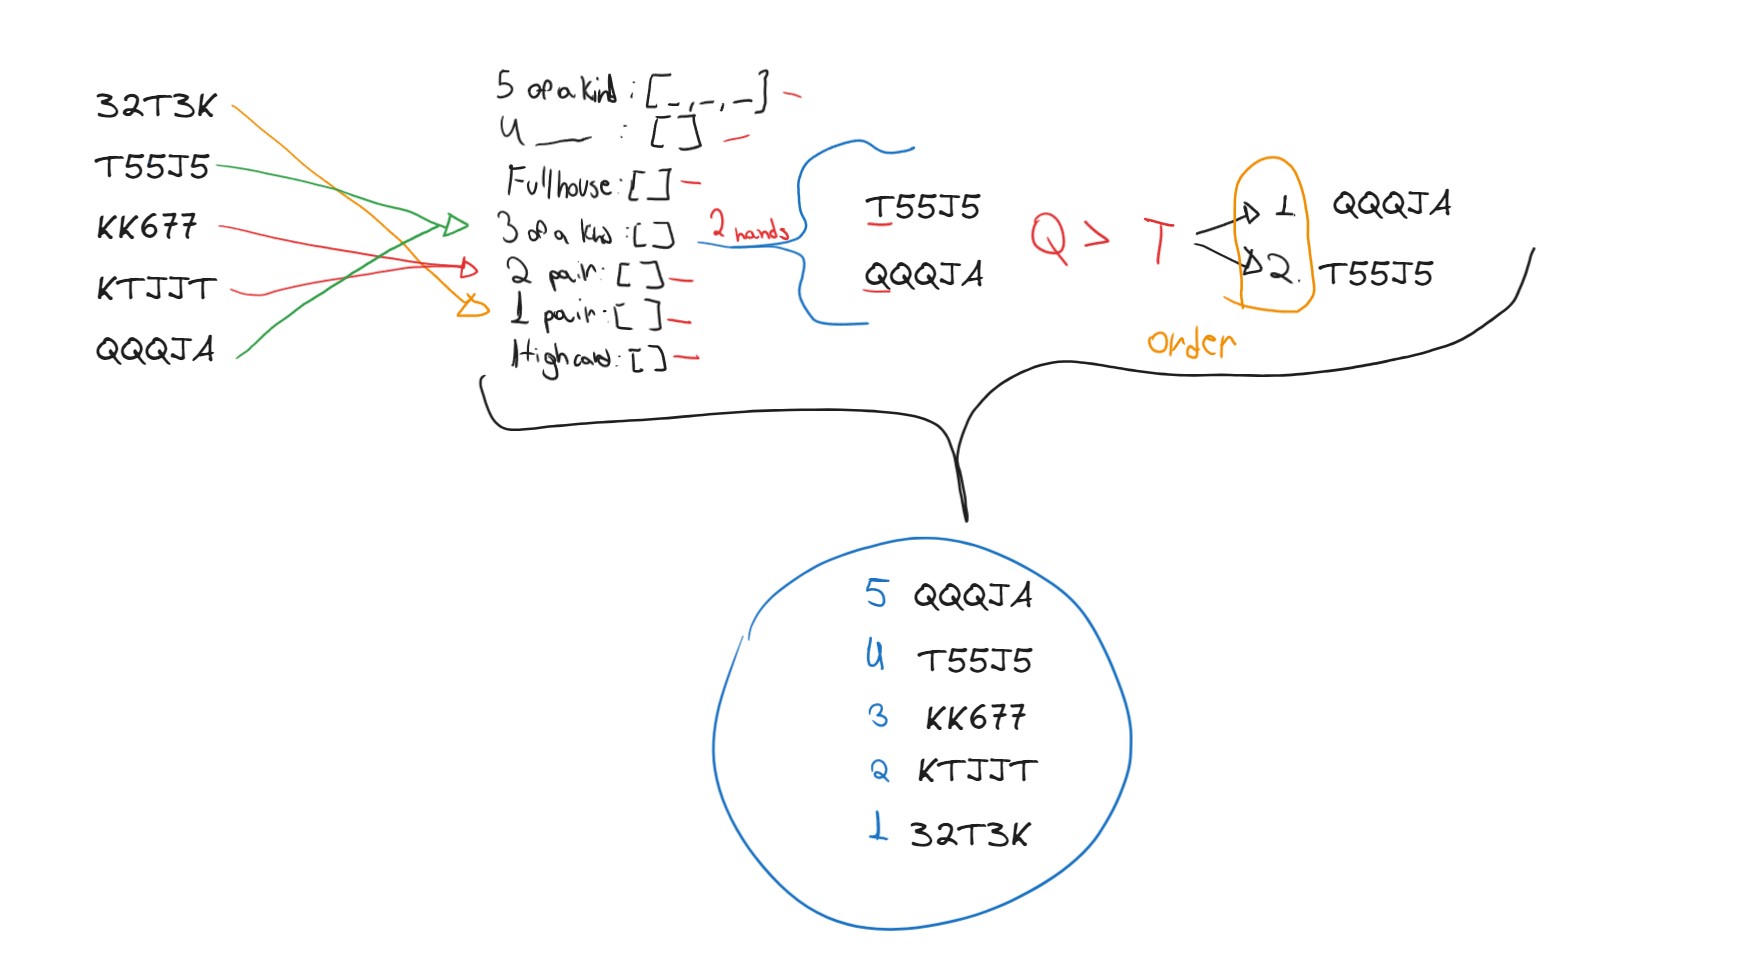 32T3K
T55J5
KK677
KTJJT
QQQJA
5 of a kind : [_,-,_] -
4 __ : [ ] -
Full house: [ ] -
3 of a kind : [ ]
2 pair: [ ] -
1 pair: [ ] -
High card: [ ] -
2 hands
T55J5
QQQJA
Q > T
1. QQQJA
2. T55J5
order
5 QQQJA
4 T55J5
3 KK677
2 KTJJT
1 32T3K